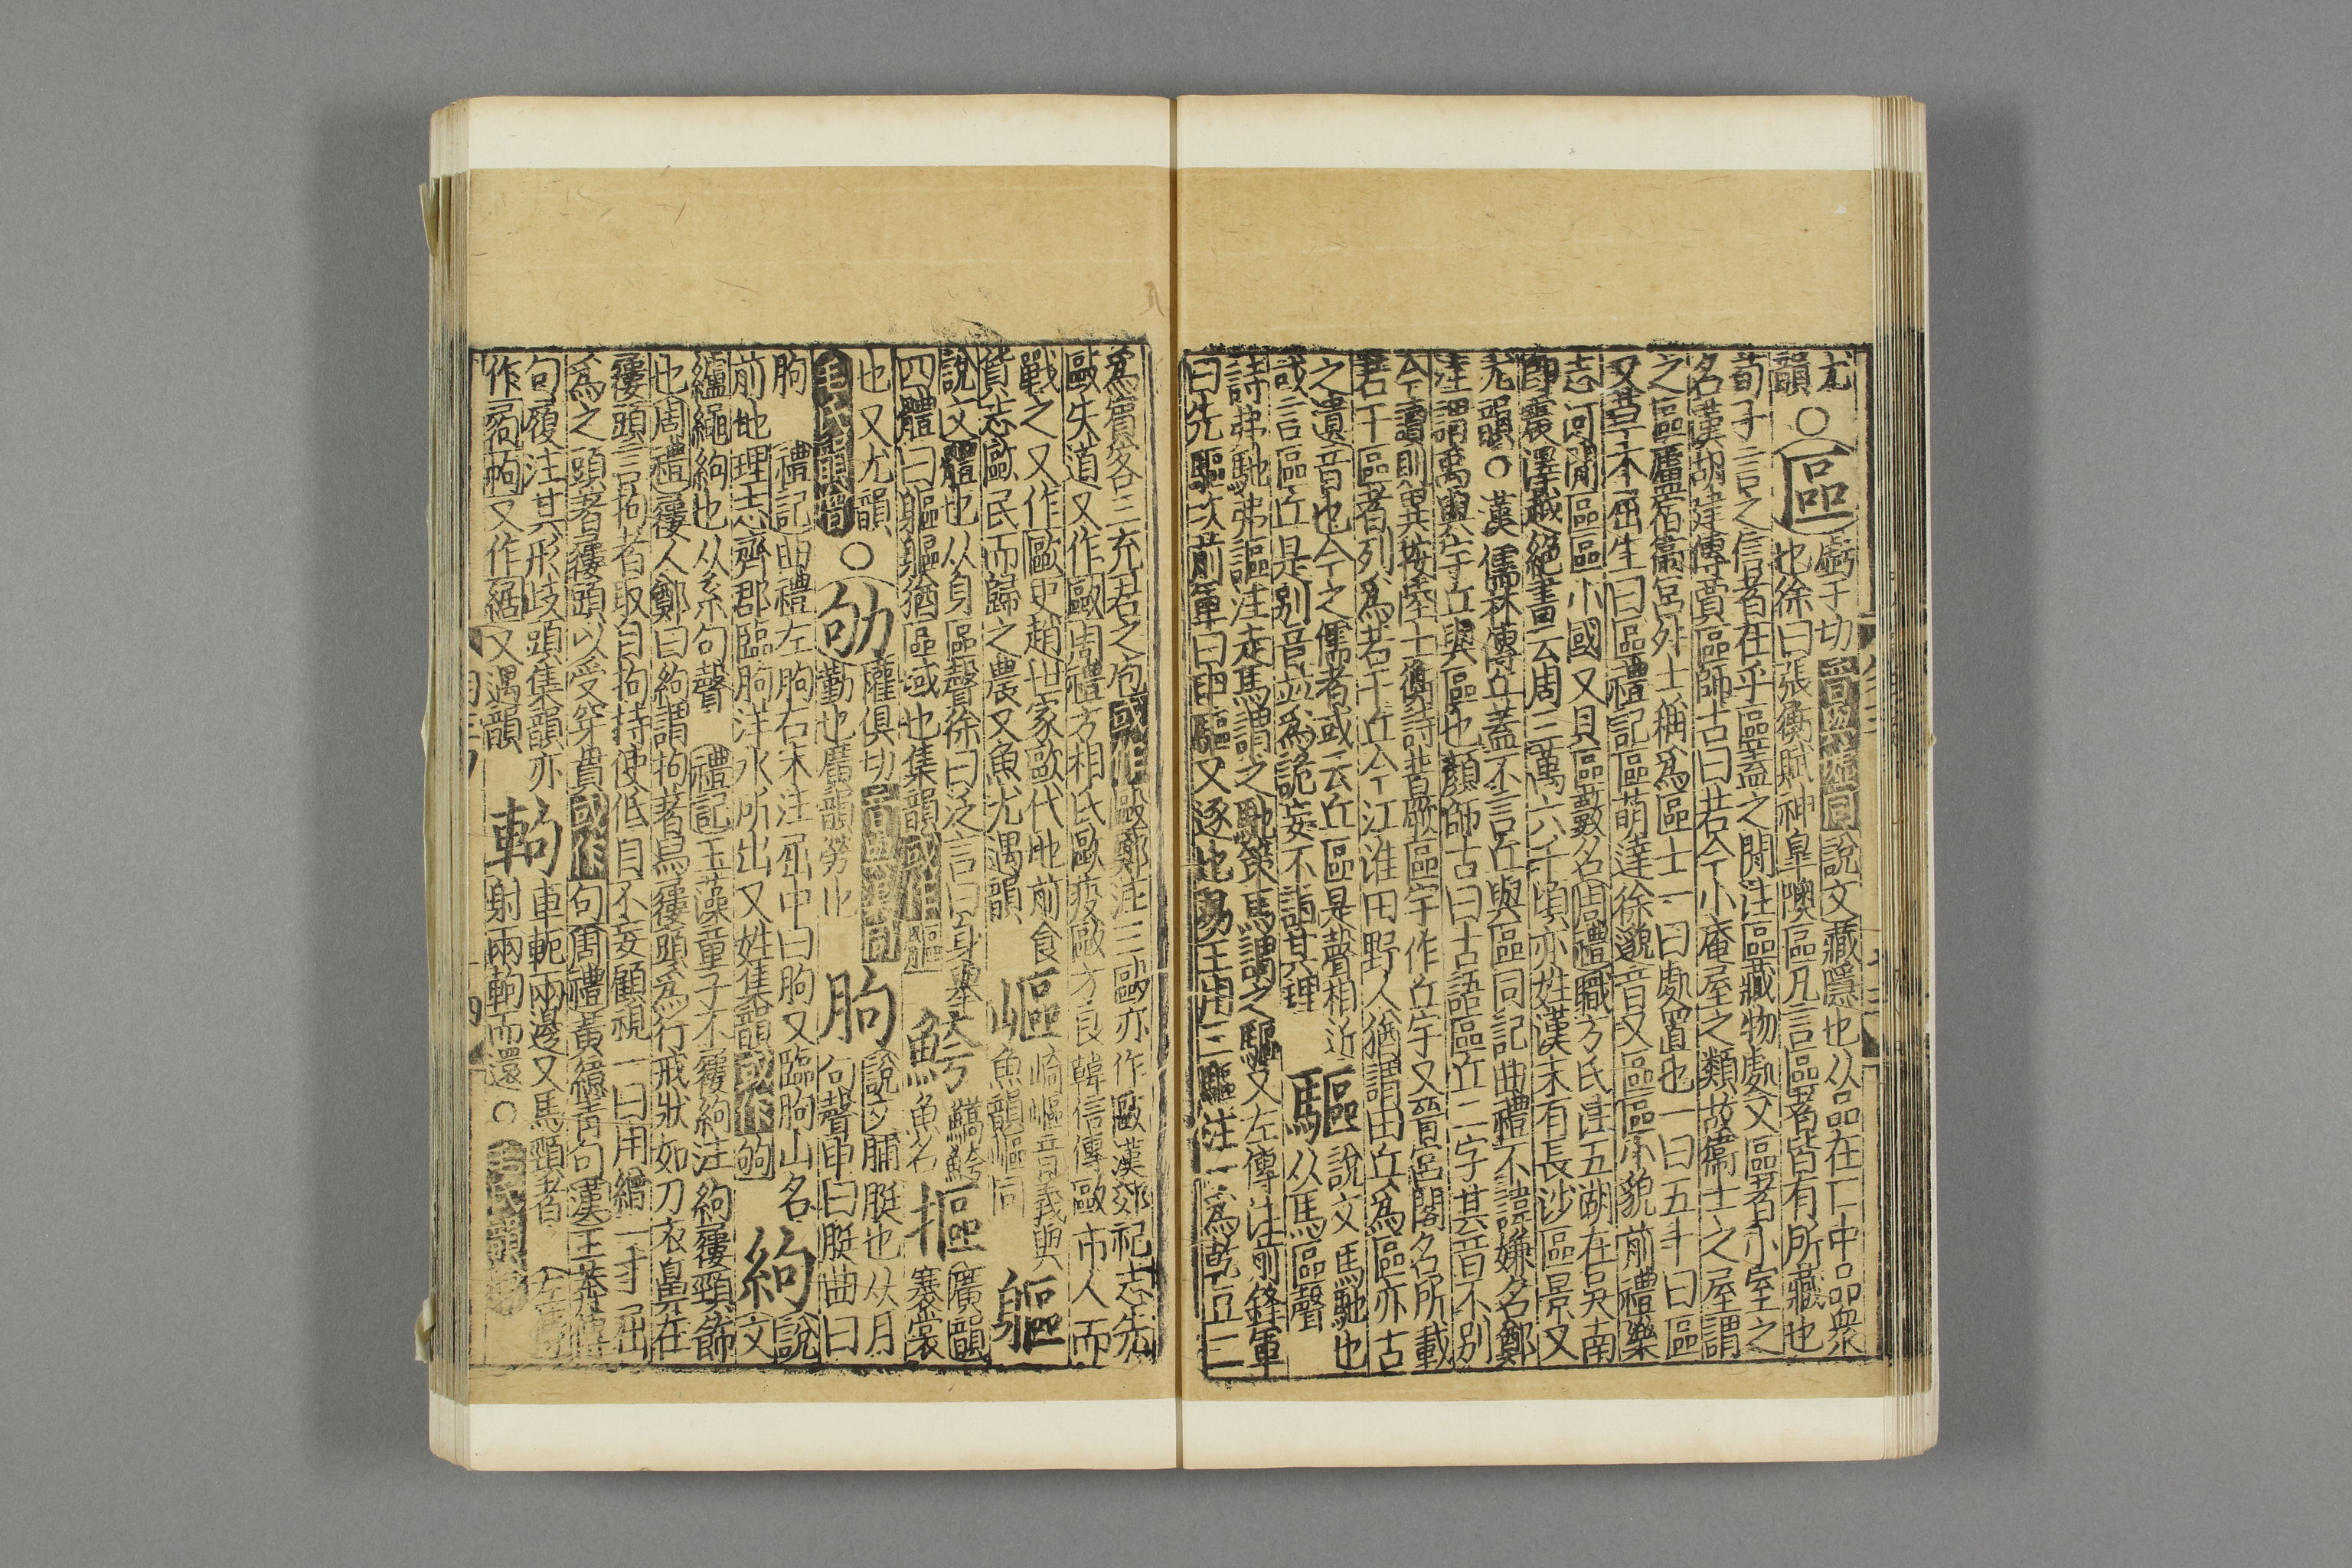 尤
韻○區虧于切音與墟同說文藏隱也从品在匸中品衆
也徐曰張衡賦神皐隩區凡言區者皆有所藏也
荀子言之信者在乎區蓋之間注區藏物處又區者小室之
名漢胡建傳賈區師古曰若今小庵屋之類故衞士之屋謂
之區廬宿衞宮外士稱爲區士一曰處置也一曰五十曰區
又草木屈生曰區禮記區萌達徐邈音又區區小貌前禮樂
志河間區區小國又具區藪名周禮職方氏注五湖在吳南
即震澤越絕書云周三萬六千頃亦姓漢末有長沙區景又
尤韻○漢儒林傳丘蓋不言丘與區同記曲禮不諱嫌名鄭
注謂禹與宇丘與區也顏師古曰古語區丘二字其音不別
今讀則異按陸士衡詩普厥區宇作丘宇又晉宮閣名所載
若干區者列爲若干丘今江淮田野人猶謂田丘爲區亦古
之遺音也今之儒者或云丘區是聲相近
或言區丘是別音並爲詭妄不詣其理驅說文馬馳也
从馬區聲
詩弗馳弗驅注走馬謂之馳策馬謂之驅又左傳注前鋒軍
曰先驅次前軍曰申驅又逐也易王用三驅注一爲乾豆二
爲賓客三充君之庖或作敺鄭注三敺亦作敺漢郊祀志先
敺失道又作敺周禮方相氏敺疫敺方良韓信傳敺市人而
戰之又作歐史趙世家歐代地前食
貨志歐民而歸之農又魚尤遇韻嶇崎嶇音義與
魚韻嶇同軀
說文體也从身區聲徐曰泛言曰身舉
四體曰軀軀猶區域也集韻或作䡱鮬鱎鮬
魚名摳廣韻
褰裳
也又尤韻
毛氏韻增○劬權俱切音與衢同
勤也廣韻勞也朐說文脯脡也从月
句聲申曰脡曲曰
朐禮記曲禮左朐右末注屈中曰朐又臨朐山名
前地理志齊郡臨朐注水所出又姓集韻或作䪷絇說
文
纑繩絇也从糸句聲禮記玉藻童子不屨絇注絇屨頭飾
也周禮屨人鄭曰絇謂拘著舄屨頭爲行戒狀如刀衣鼻在
屨頭言拘者取自拘持使低目不妄顧視一曰用繒一寸屈
爲之頭著屨頭以受穿貫或作句周禮黃繶靑句漢王莽傳
句履注其形歧頭集韻亦
作又作又遇韻軥車軛兩邊叉馬頸者左傳
射兩軥而還○毛氏韻增